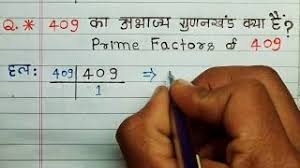 Q.* 409 का अभाज्य गुणनखंड क्या है?
Prime Factors of 409
हलः 409 | 409 ⇒
1